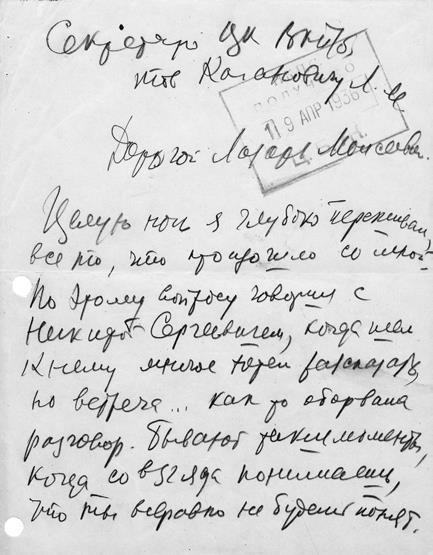 Секретарю ЦК ВКП(б)
тов Кагановичу Л. М.
ПОЛУЧЕНО
19 АПР 1936
Дорогой Лазарь Моисеевич.
Целую ночь я глубоко переживал
все то, что произошло со мной
По этому вопросу говорил с
Никитой Сергеевичем, когда шел
к нему многое хотел рассказать,
но встреча... как то оборвала
разговор. Бывают такие моменты,
когда со взгляда понимаешь,
что ты всеравно не будешь понят.